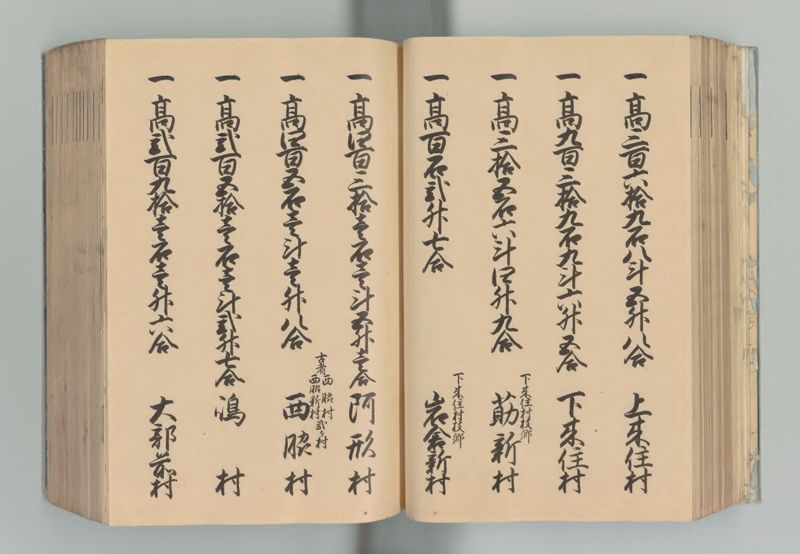 一高三百六拾九石八斗五升八合 上来住村
一高九百三拾九石九斗六升五合 下来住村
一高三拾五石六斗四升九合 下来住村枝郷 新村
一高百石弐升七合 下来住村枝郷 岩倉新村
一高四百三拾壱石壱斗五升壱合 阿形村
一高四百五石壱斗壱升八合 西脇村 西脇新村 弐ヶ村 西脇村
一高弐百五拾壱石壱斗弐升七合 嶋村
一高弐百九拾壱石壱升六合 大部前村